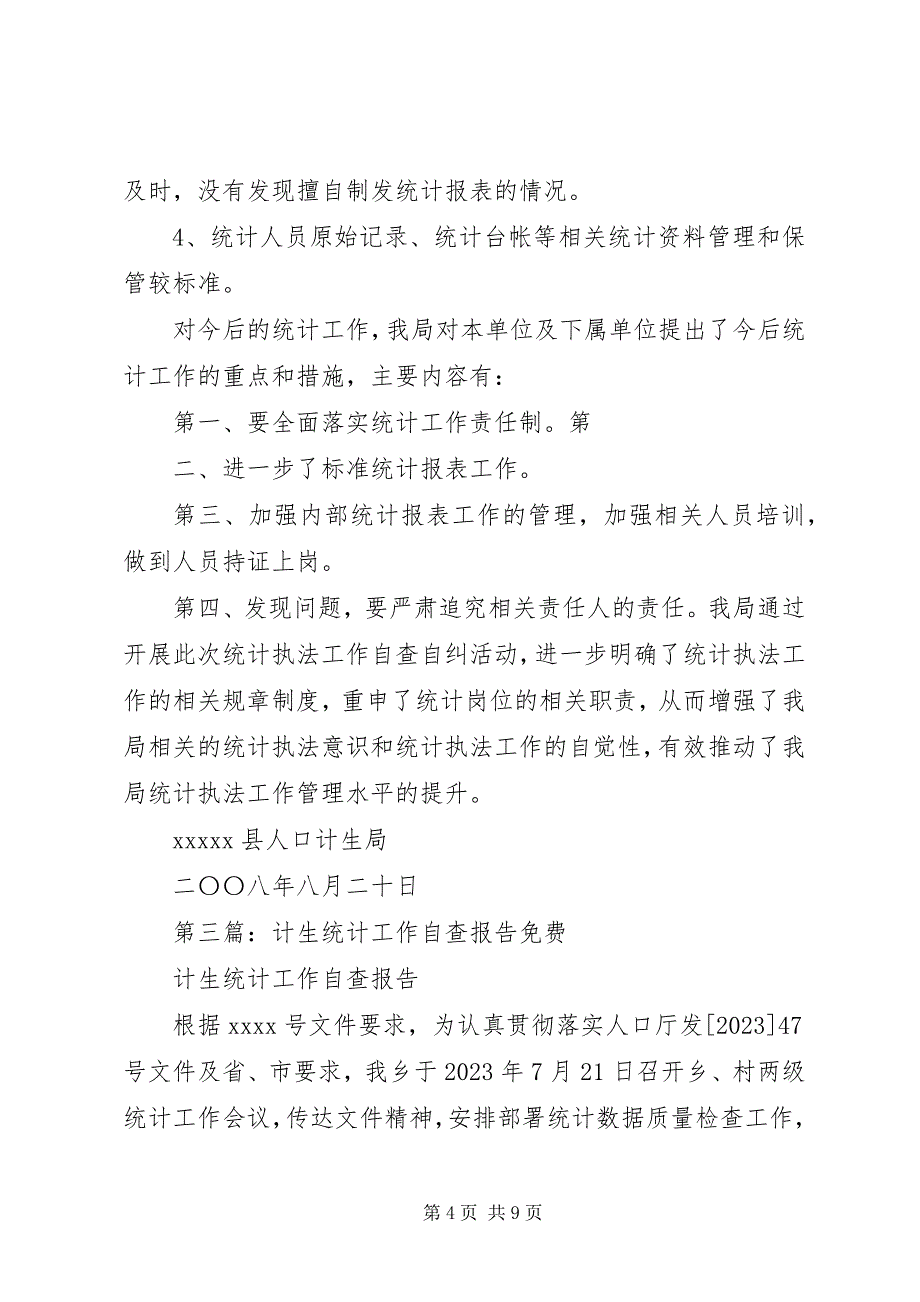 及时，没有发现擅自制发统计报表的情况。
4、统计人员原始记录、统计台帐等相关统计资料管理和保
管较标准。
对今后的统计工作，我局对本单位及下属单位提出了今后统
计工作的重点和措施，主要内容有：
第一、要全面落实统计工作责任制。第
二、进一步了标准统计报表工作。
第三、加强内部统计报表工作的管理，加强相关人员培训，
做到人员持证上岗。
第四、发现问题，要严肃追究相关责任人的责任。我局通过
开展此次统计执法工作自查自纠活动，进一步明确了统计执法工
作的相关规章制度，重申了统计岗位的相关职责，从而增强了我
局相关的统计执法意识和统计执法工作的自觉性，有效推动了我
局统计执法工作管理水平的提升。
xxxxx 县人口计生局
二〇〇八年八月二十日
第三篇：计生统计工作自查报告免费
计生统计工作自查报告
根据 xxxx 号文件要求，为认真贯彻落实人口厅发[2023]47
号文件及省、市要求，我乡于 2023 年 7 月 21 日召开乡、村两级
统计工作会议，传达文件精神，安排部署统计数据质量检查工作，
第 4 页 共 9 页